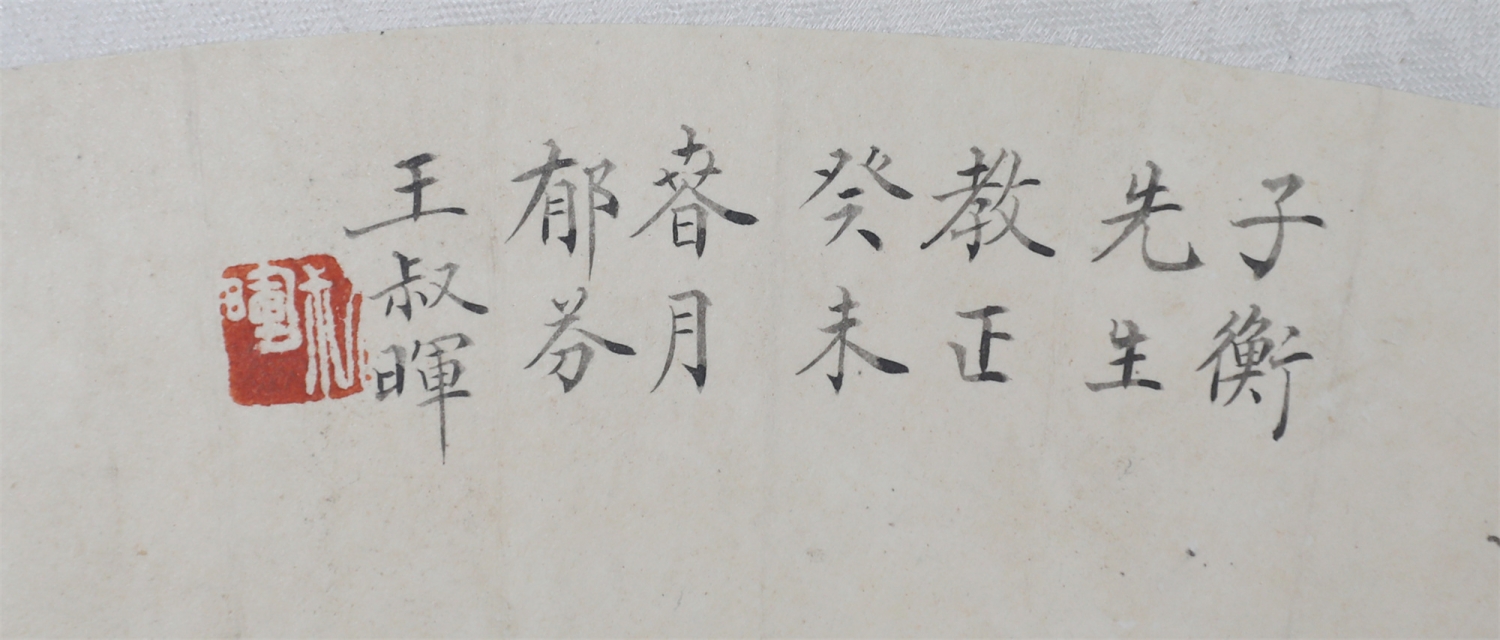 子衡
先生
教正
癸未
春月
郁芬
王叔暉
叔暉